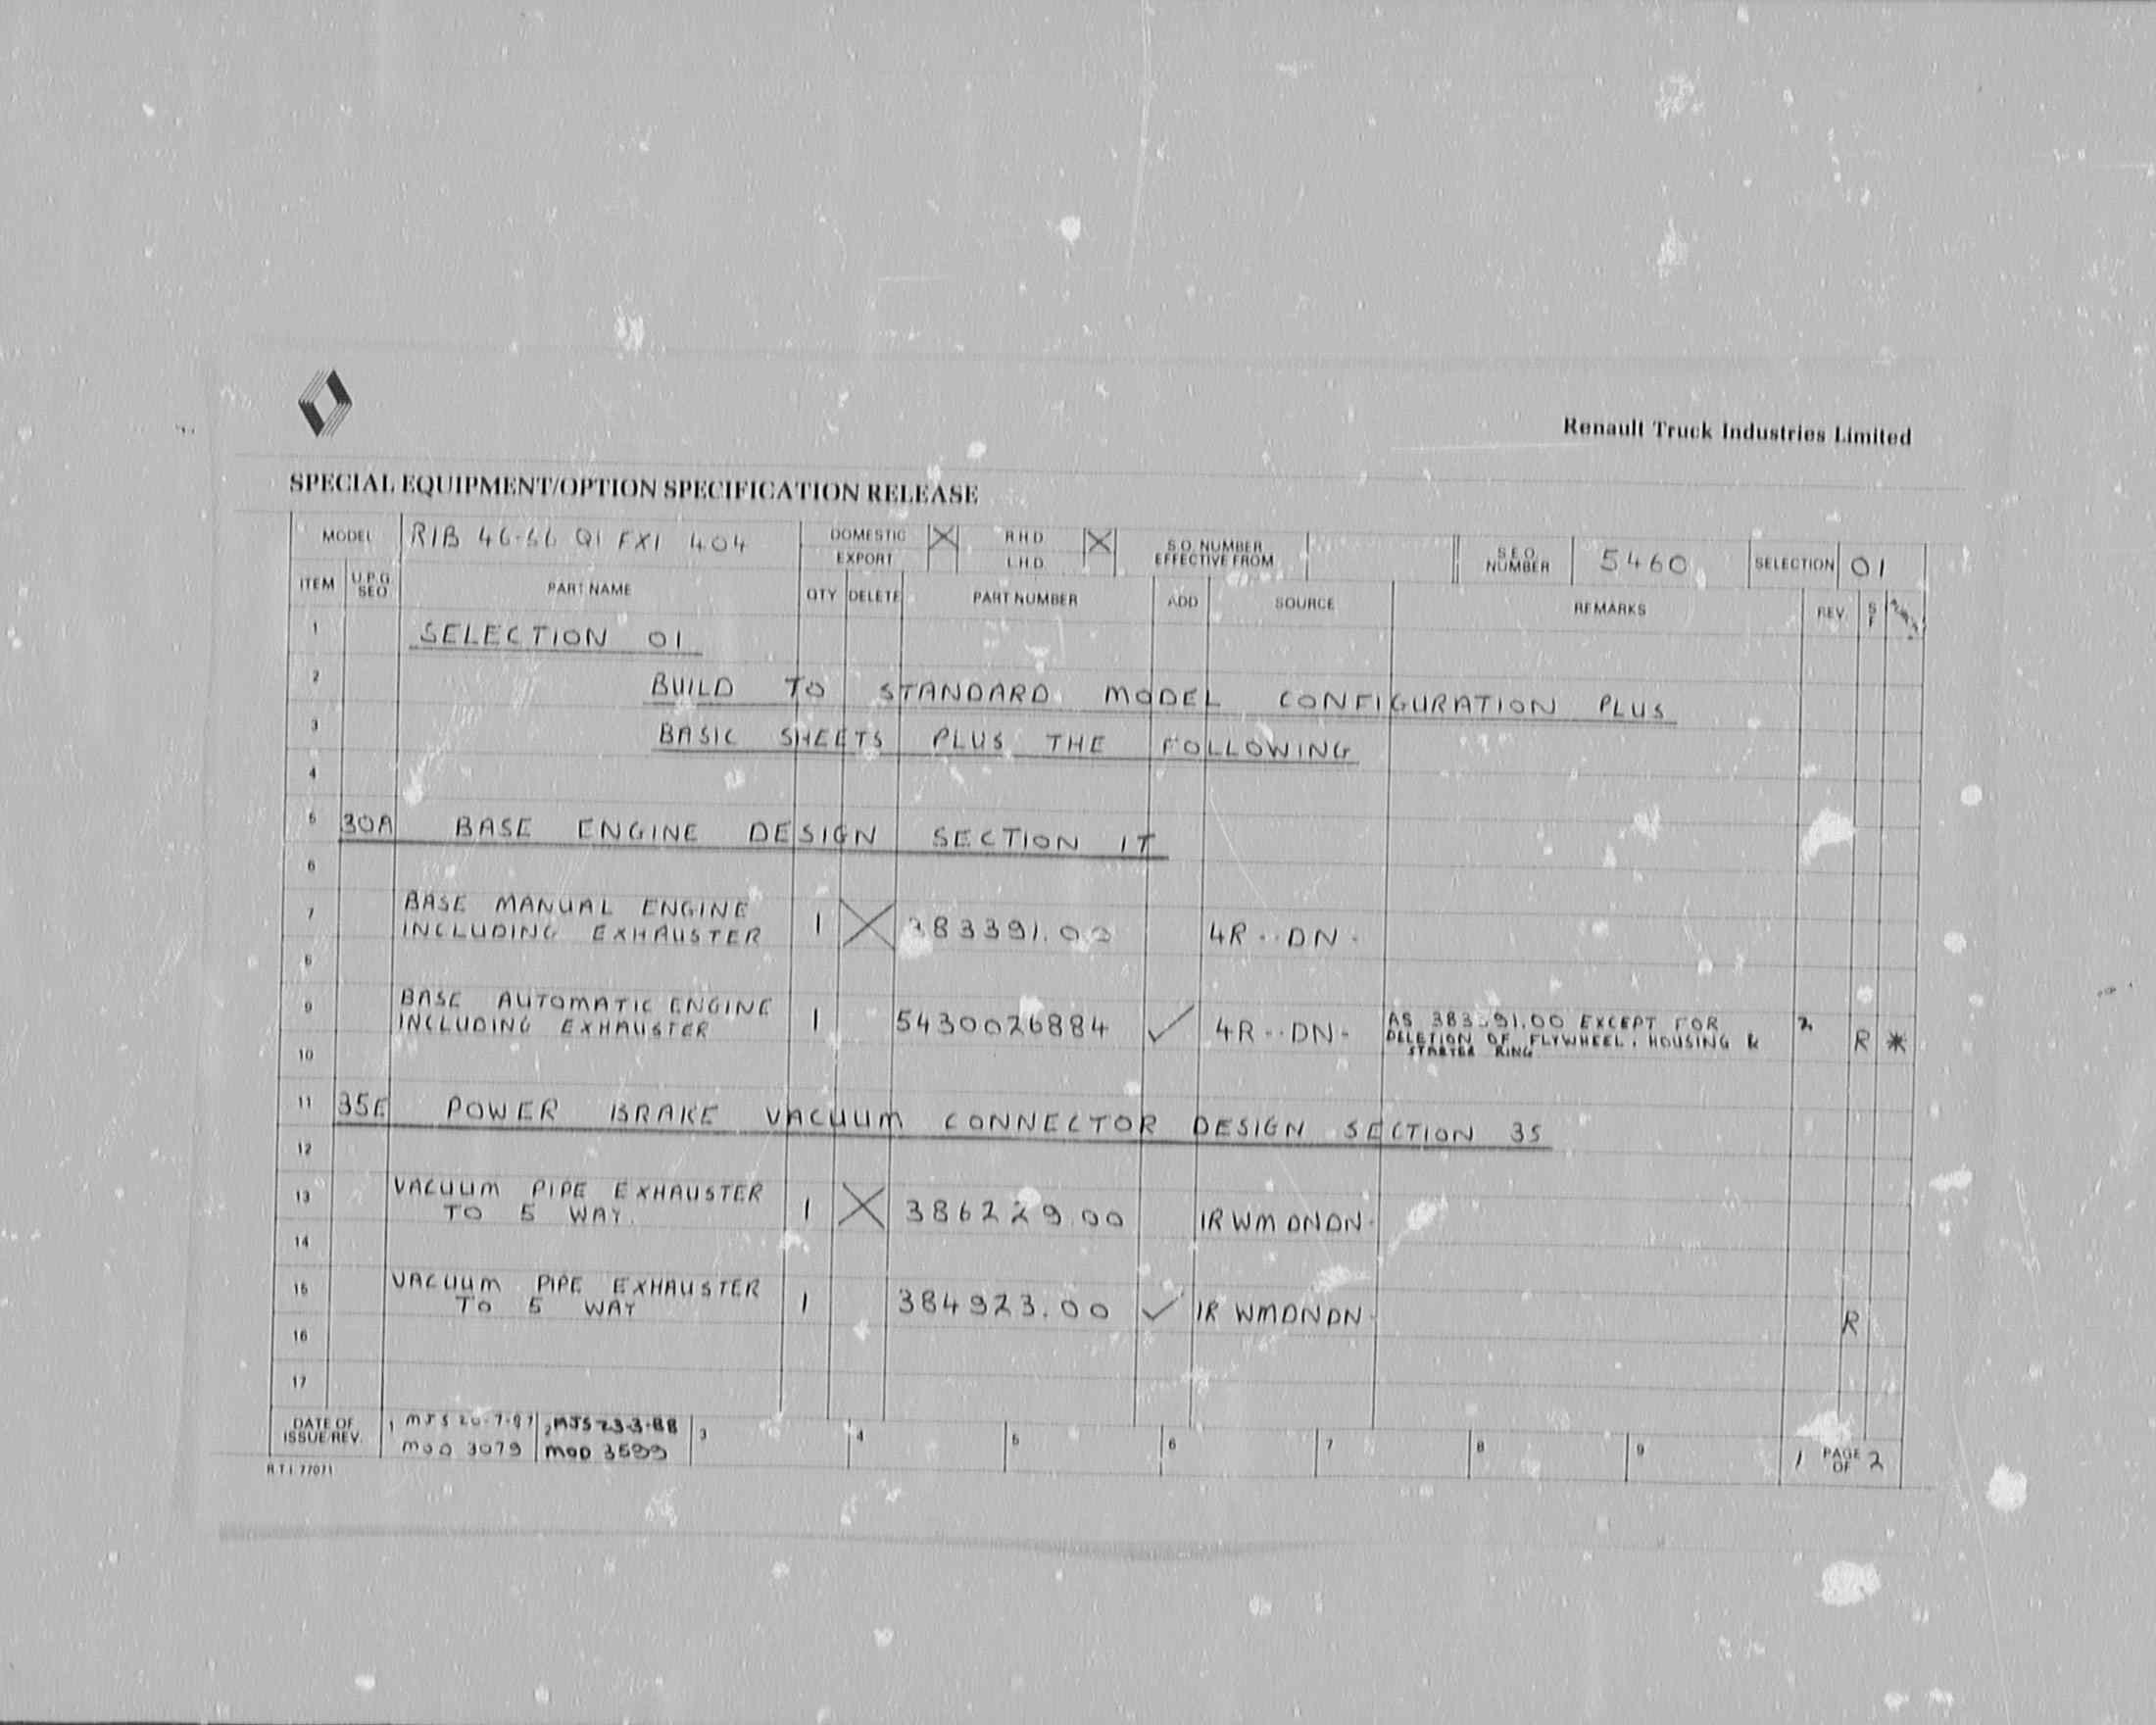 Renault Truck Industries Limited
SPECIAL EQUIPMENT/OPTION SPECIFICATION RELEASE
MODEL RIB 46-66 Q1 FX1 404 DOMESTIC X R.H.D. X S.O. NUMBER S.E.O. 5460 SELECTION 01
EXPORT L.H.D. EFFECTIVE FROM NUMBER
ITEM U.P.G. SEQ PART NAME QTY DELETE PART NUMBER ADD SOURCE REMARKS REV. S F
1 SELECTION 01
2 BUILD TO STANDARD MODEL CONFIGURATION PLUS
3 BASIC SHEETS PLUS THE FOLLOWING
4
5 30A BASE ENGINE DESIGN SECTION 1T
6
7 BASE MANUAL ENGINE
INCLUDING EXHAUSTER 1 X 383391.00 4R--DN-
8
9 BASE AUTOMATIC ENGINE
INCLUDING EXHAUSTER 1 5430026884 ✓ 4R--DN- AS 383391.00 EXCEPT FOR 2 R *
DELETION OF FLYWHEEL, HOUSING &
STARTER RING
10
11 35E POWER BRAKE VACUUM CONNECTOR DESIGN SECTION 35
12
13 VACUUM PIPE EXHAUSTER
TO 5 WAY. 1 X 386229.00 1RWMDNDN-
14
15 VACUUM PIPE EXHAUSTER
TO 5 WAY 1 384923.00 ✓ 1RWMDNDN- R
16
17
DATE OF 1 MJS 20-7-87 2 MJS 23-3-88 3 4 5 6 7 8 9 1 PAGE 2
ISSUE/REV. MOD 3079 MOD 3599 OF
R.T.I. 77071